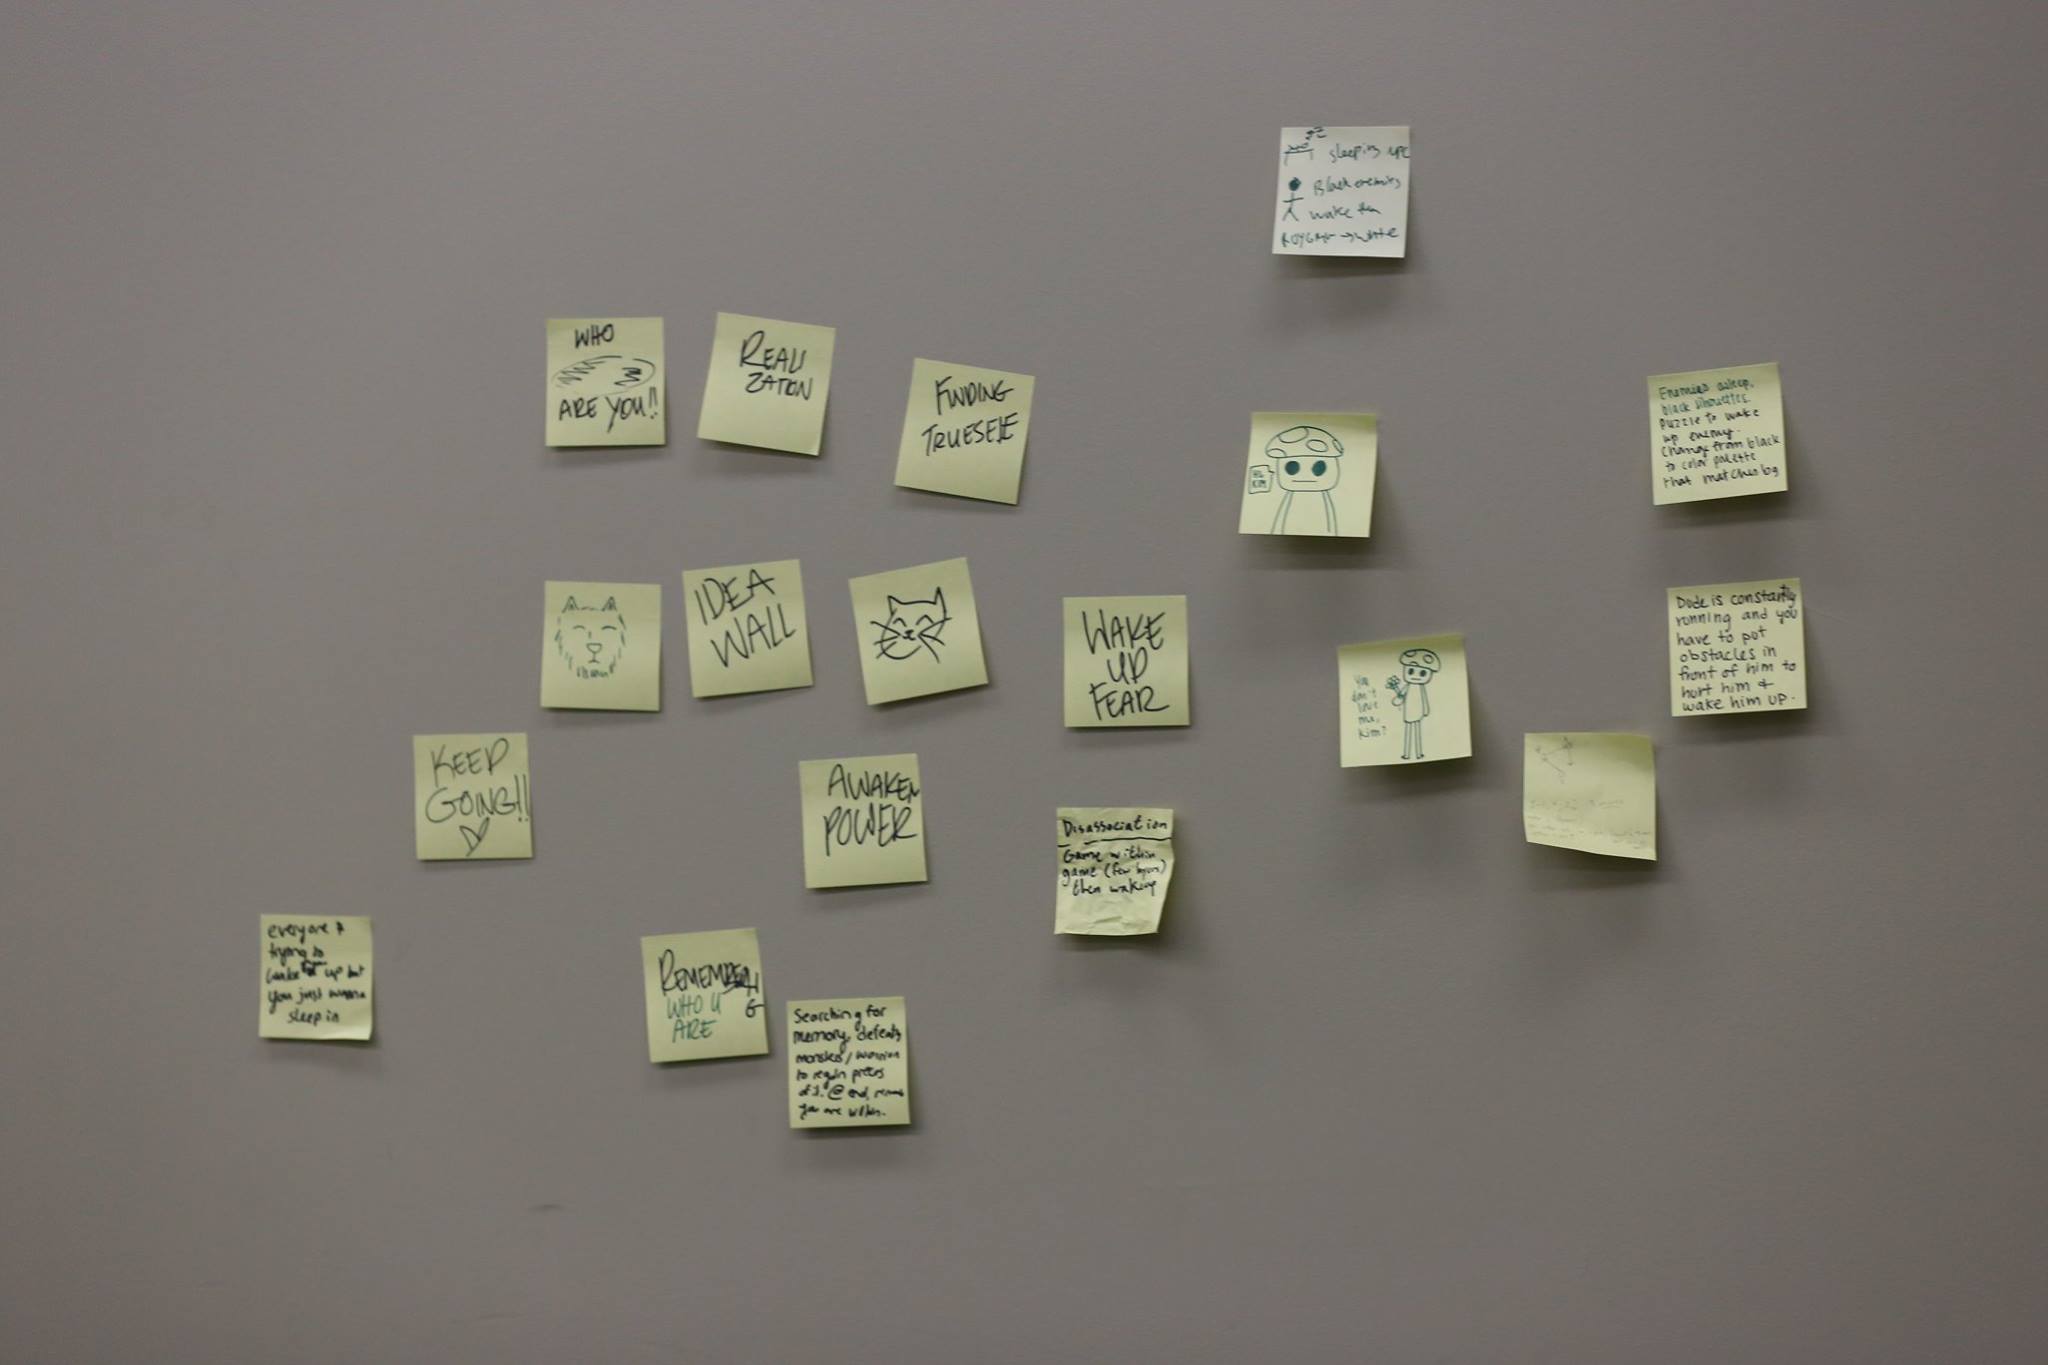 sleeping NPC
Black enemies
wake them
→ white
WHO
ARE YOU!!
REALI
ZATION
FINDING
TRUESELF
HI
KIM
Enemies asleep,
black silhouettes.
puzzle to wake
up enemy.
Change from black
to color palette
that matches bg
IDEA
WALL
WAKE
UP
FEAR
You
don't
love
me,
Kim?
Dude is constantly
running and you
have to put
obstacles in
front of him to
hurt him &
wake him up.
KEEP
GOING!!
AWAKEN
POWER
Disassociation
Game within
game (few layers)
then waking
everyone is
trying to
wake up but
you just wanna
sleep in
REMEMBERING
WHO U
ARE
Searching for
memory, defeats
monsters/warrior
to regain pieces
of 1. @ end,
you are within.